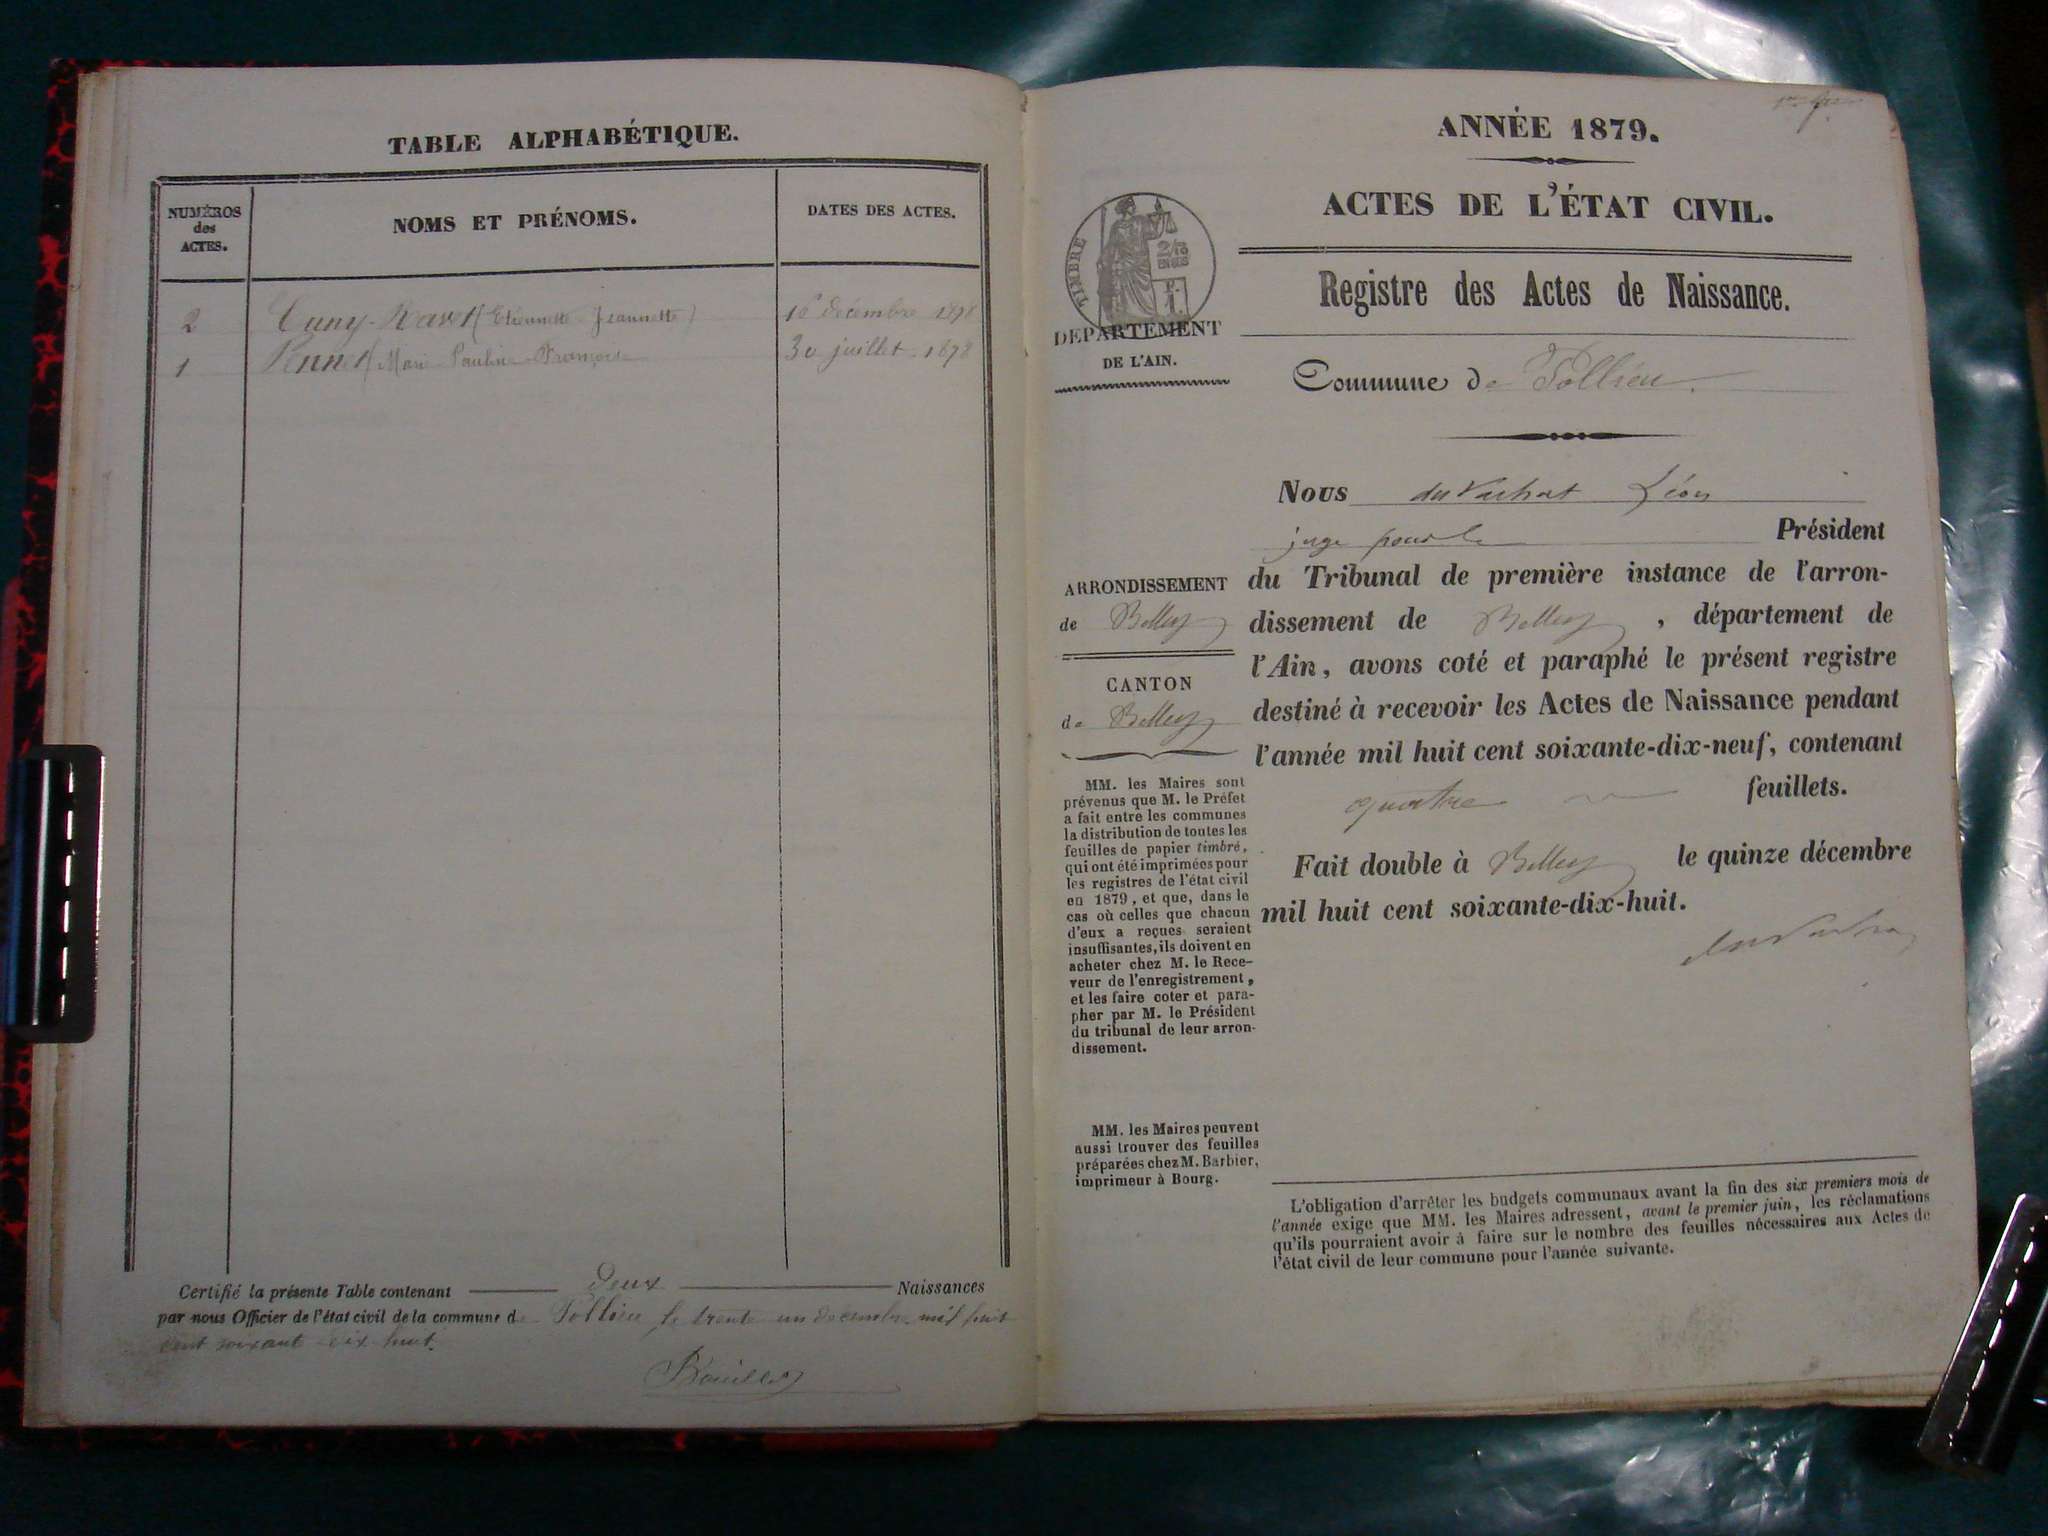 TABLE ALPHABÉTIQUE.
NUMÉROS
des
ACTES.
NOMS ET PRÉNOMS.
DATES DES ACTES.
2 Cuny-Ravet (Etiennette Jeannette) 16 décembre 1878
1 (Marie Pauline Françoise 30 juillet 1878
Certifié la présente Table contenant deux Naissances
par nous Officier de l'état civil de la commune de Pollieu le trente un décembre mil huit
cent soixant dix huit.
ANNÉE 1879.
ACTES DE L'ÉTAT CIVIL.
TIMBRE
2/10
EN SUS
DEPARTEMENT
DE L'AIN.
Registre des Actes de Naissance.
Commune de Pollieu.
Nous du Vachat Léon
juge pour le Président
du Tribunal de première instance de l'arron-
dissement de Belley, département de
l'Ain, avons coté et paraphé le présent registre
destiné à recevoir les Actes de Naissance pendant
l'année mil huit cent soixante-dix-neuf, contenant
quatre feuillets.
Fait double à Belley le quinze décembre
mil huit cent soixante-dix-huit.
du Vachat
ARRONDISSEMENT
de Belley
CANTON
de Belley
MM. les Maires sont
prévenus que M. le Préfet
a fait entre les communes
la distribution de toutes les
feuilles de papier timbré,
qui ont été imprimées pour
les registres de l'état civil
en 1879, et que, dans le
cas où celles que chacun
d'eux a reçues seraient
insuffisantes, ils doivent en
acheter chez M. le Rece-
veur de l'enregistrement,
et les faire coter et para-
pher par M. le Président
du tribunal de leur arron-
dissement.
MM. les Maires peuvent
aussi trouver des feuilles
préparées chez M. Barbier,
imprimeur à Bourg.
L'obligation d'arrêter les budgets communaux avant la fin des six premiers mois de
l'année exige que MM. les Maires adressent, avant le premier juin, les réclamations
qu'ils pourraient avoir à faire sur le nombre des feuilles nécessaires aux Actes de
l'état civil de leur commune pour l'année suivante.